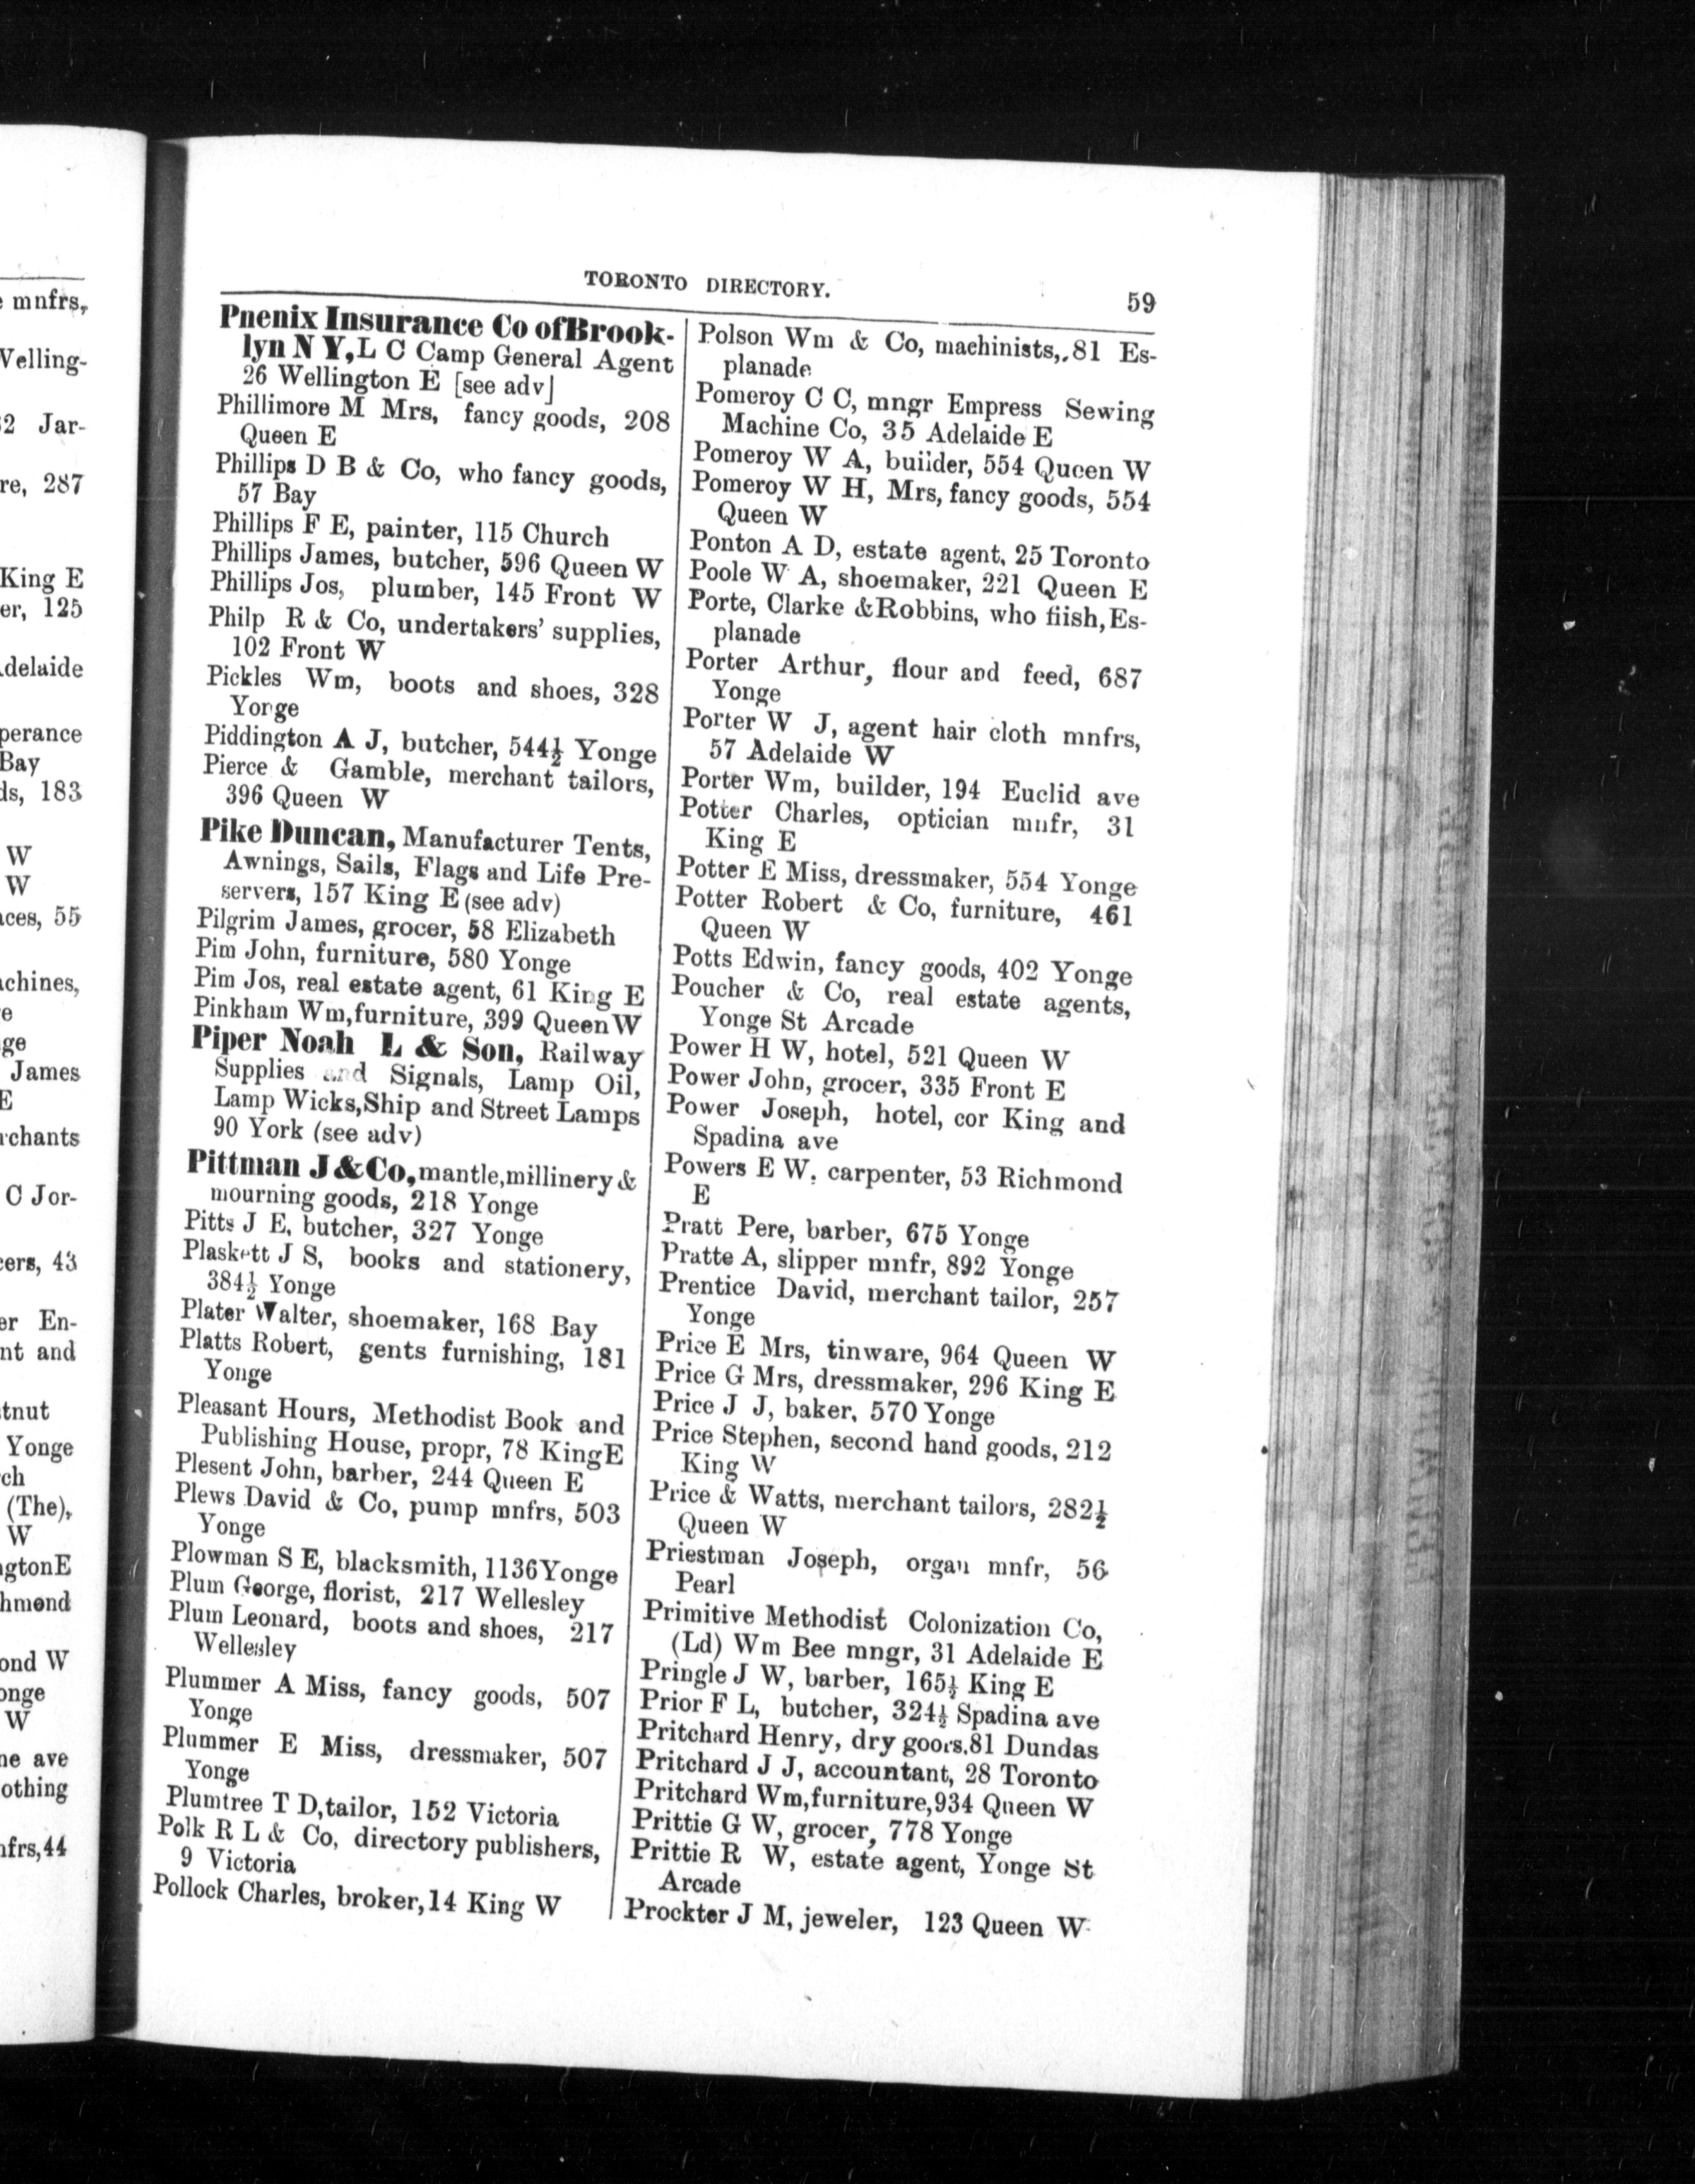 mnfrs,
Velling-
32 Jar-
re, 287
King E
er, 125
delaide
perance
Bay
ds, 183
W
W
ces, 55
chines,
e
ge
James
E
rchants
C Jor-
cers, 43
er En-
nt and
tnut
Yonge
ch
(The),
W
gtonE
hmond
ond W
onge
W
ne ave
othing
nfrs,44
TORONTO DIRECTORY.
59
Phenix Insurance Co ofBrook-
lyn N Y, L C Camp General Agent
26 Wellington E [see adv]
Phillimore M Mrs, fancy goods, 208
Queen E
Phillips D B & Co, who fancy goods,
57 Bay
Phillips F E, painter, 115 Church
Phillips James, butcher, 596 Queen W
Phillips Jos, plumber, 145 Front W
Philp R & Co, undertakers' supplies,
102 Front W
Pickles Wm, boots and shoes, 328
Yonge
Piddington A J, butcher, 544½ Yonge
Pierce & Gamble, merchant tailors,
396 Queen W
Pike Duncan, Manufacturer Tents,
Awnings, Sails, Flags and Life Pre-
servers, 157 King E (see adv)
Pilgrim James, grocer, 58 Elizabeth
Pim John, furniture, 580 Yonge
Pim Jos, real estate agent, 61 King E
Pinkham Wm, furniture, 399 Queen W
Piper Noah L & Son, Railway
Supplies and Signals, Lamp Oil,
Lamp Wicks, Ship and Street Lamps
90 York (see adv)
Pittman J & Co, mantle, millinery &
mourning goods, 218 Yonge
Pitts J E, butcher, 327 Yonge
Plaskett J S, books and stationery,
384½ Yonge
Plater Walter, shoemaker, 168 Bay
Platts Robert, gents furnishing, 181
Yonge
Pleasant Hours, Methodist Book and
Publishing House, propr, 78 King E
Plesent John, barber, 244 Queen E
Plews David & Co, pump mnfrs, 503
Yonge
Plowman S E, blacksmith, 1136 Yonge
Plum George, florist, 217 Wellesley
Plum Leonard, boots and shoes, 217
Wellesley
Plummer A Miss, fancy goods, 507
Yonge
Plummer E Miss, dressmaker, 507
Yonge
Plumtree T D, tailor, 152 Victoria
Polk R L & Co, directory publishers,
9 Victoria
Pollock Charles, broker, 14 King W
Polson Wm & Co, machinists,.81 Es-
planade
Pomeroy C C, mngr Empress Sewing
Machine Co, 35 Adelaide E
Pomeroy W A, builder, 554 Queen W
Pomeroy W H, Mrs, fancy goods, 554
Queen W
Ponton A D, estate agent, 25 Toronto
Poole W A, shoemaker, 221 Queen E
Porte, Clarke & Robbins, who fiish, Es-
planade
Porter Arthur, flour and feed, 687
Yonge
Porter W J, agent hair cloth mnfrs,
57 Adelaide W
Porter Wm, builder, 194 Euclid ave
Potter Charles, optician mnfr, 31
King E
Potter E Miss, dressmaker, 554 Yonge
Potter Robert & Co, furniture, 461
Queen W
Potts Edwin, fancy goods, 402 Yonge
Poucher & Co, real estate agents,
Yonge St Arcade
Power H W, hotel, 521 Queen W
Power John, grocer, 335 Front E
Power Joseph, hotel, cor King and
Spadina ave
Powers E W. carpenter, 53 Richmond
E
Pratt Pere, barber, 675 Yonge
Pratte A, slipper mnfr, 892 Yonge
Prentice David, merchant tailor, 257
Yonge
Price E Mrs, tinware, 964 Queen W
Price G Mrs, dressmaker, 296 King E
Price J J, baker, 570 Yonge
Price Stephen, second hand goods, 212
King W
Price & Watts, merchant tailors, 282½
Queen W
Priestman Joseph, organ mnfr, 56
Pearl
Primitive Methodist Colonization Co,
(Ld) Wm Bee mngr, 31 Adelaide E
Pringle J W, barber, 165½ King E
Prior F L, butcher, 324½ Spadina ave
Pritchard Henry, dry goors, 81 Dundas
Pritchard J J, accountant, 28 Toronto
Pritchard Wm, furniture, 934 Queen W
Prittie G W, grocer, 778 Yonge
Prittie R W, estate agent, Yonge St
Arcade
Prockter J M, jeweler, 123 Queen W